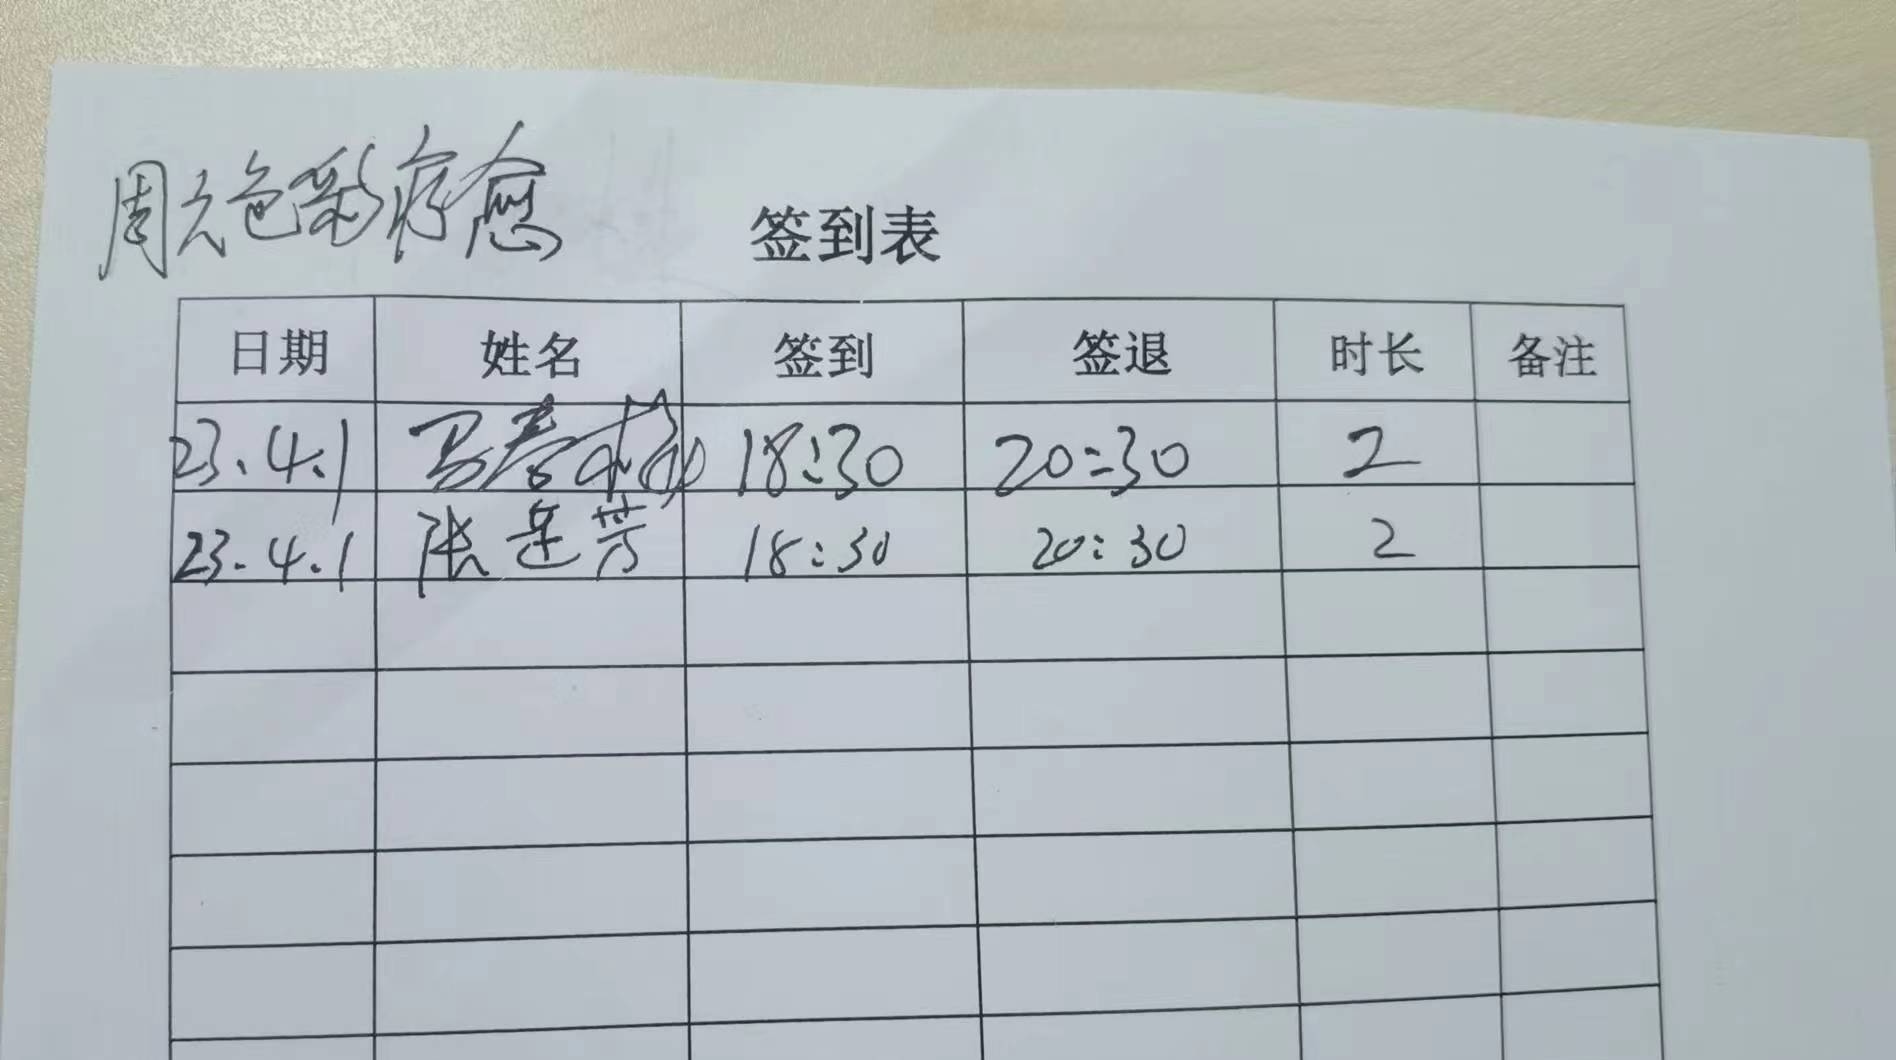 周六色彩疗愈
签到表
日期 姓名 签到 签退 时长 备注
23.4.1 马春 18:30 20:30 2
23.4.1 张 芳 18:30 20:30 2